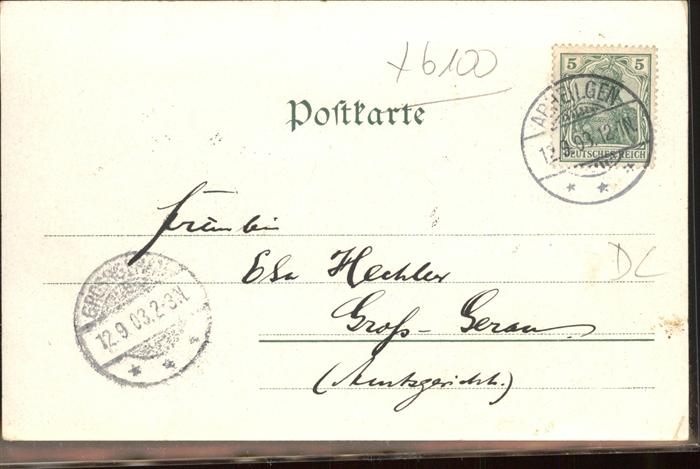 +6100
5 5
Postkarte
ARHEILGEN
12.9.03.12-1N
DEUTSCHES REICH
Fräulein
Elsa Hechler
DL
GROSS-GERAU
12.9.03.2-3.N
Groß-Gerau
(Amtsgericht.)